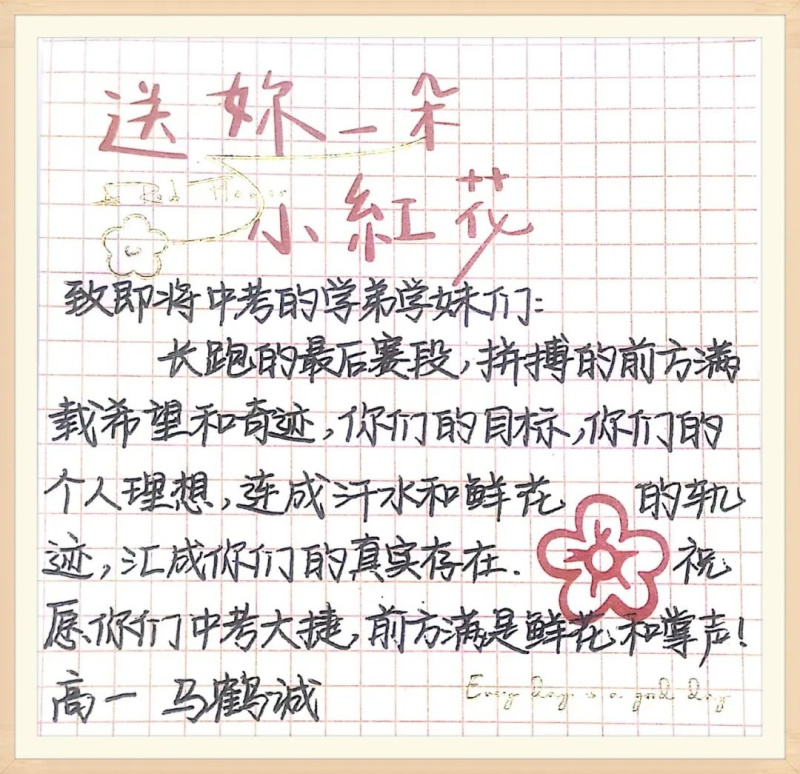 送妳一朵
A Red Flower
小紅花
致即将中考的学弟学妹们:
长跑的最后赛段,拼搏的前方满
载希望和奇迹,你们的目标,你们的
个人理想,连成汗水和鲜花的轨
迹,汇成你们的真实存在.祝
愿你们中考大捷,前方满是鲜花和掌声!
高一 马鹤诚
Every day is a good day